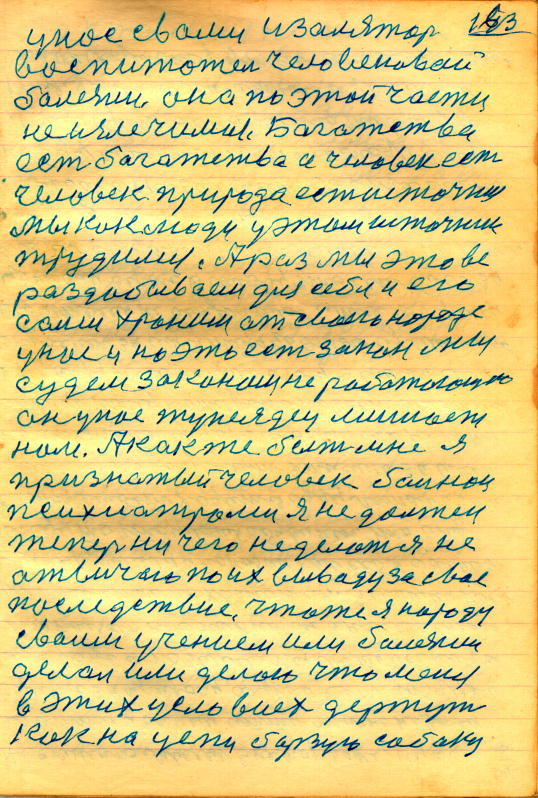 183
унас свами изалятор
воспитател человековай
балезни. она по этой части
неизличимая. Багатства
ест багатства а человек ест
человек природа ест источник
мы как люди у этом источник
трудимся. А раз мы это все
раздабываем для себя и его
сами храним от своего народа
унас и на это ест закон мы
судем законам не работающего
он унас тунеядец мишает
нам. А как же быт мне я
признатый человек балной
психиатрами я не должен
тепер ни чего не делат я не
отвичаю по их вываду за свае
последствие, что же я народу
своим учением или балезни
делал или делаю что меня
в этих условиех держут
как на цепи борзую собаку